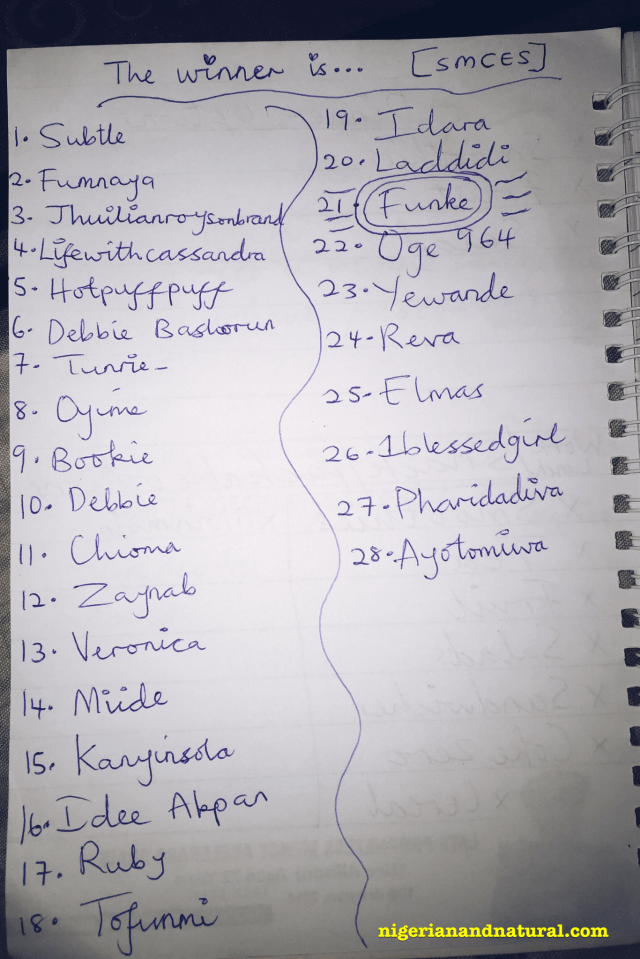 The winner is... [SMCES]
1. Subtle
2. Fumnaya
3. Jhuilianroysonbrand
4. Lifewithcassandra
5. Hotpuffpuff
6. Debbie Bashorun
7. Tunrie-
8. Oyime
9. Bookie
10. Debbie
11. Chioma
12. Zaynab
13. Veronica
14. Miide
15. Kanyinsola
16. Idee Akpan
17. Ruby
18. Tofunmi
19. Idara
20. Laddidi
21. Funke
22. Oge 964
23. Yewande
24. Reva
25. Elmas
26. 1blessedgirl
27. Pharidadiva
28. Ayotomiwa
x Fruit
x Salad
x Sandwiches
x Coke zero
x Cereal
nigerianandnatural.com